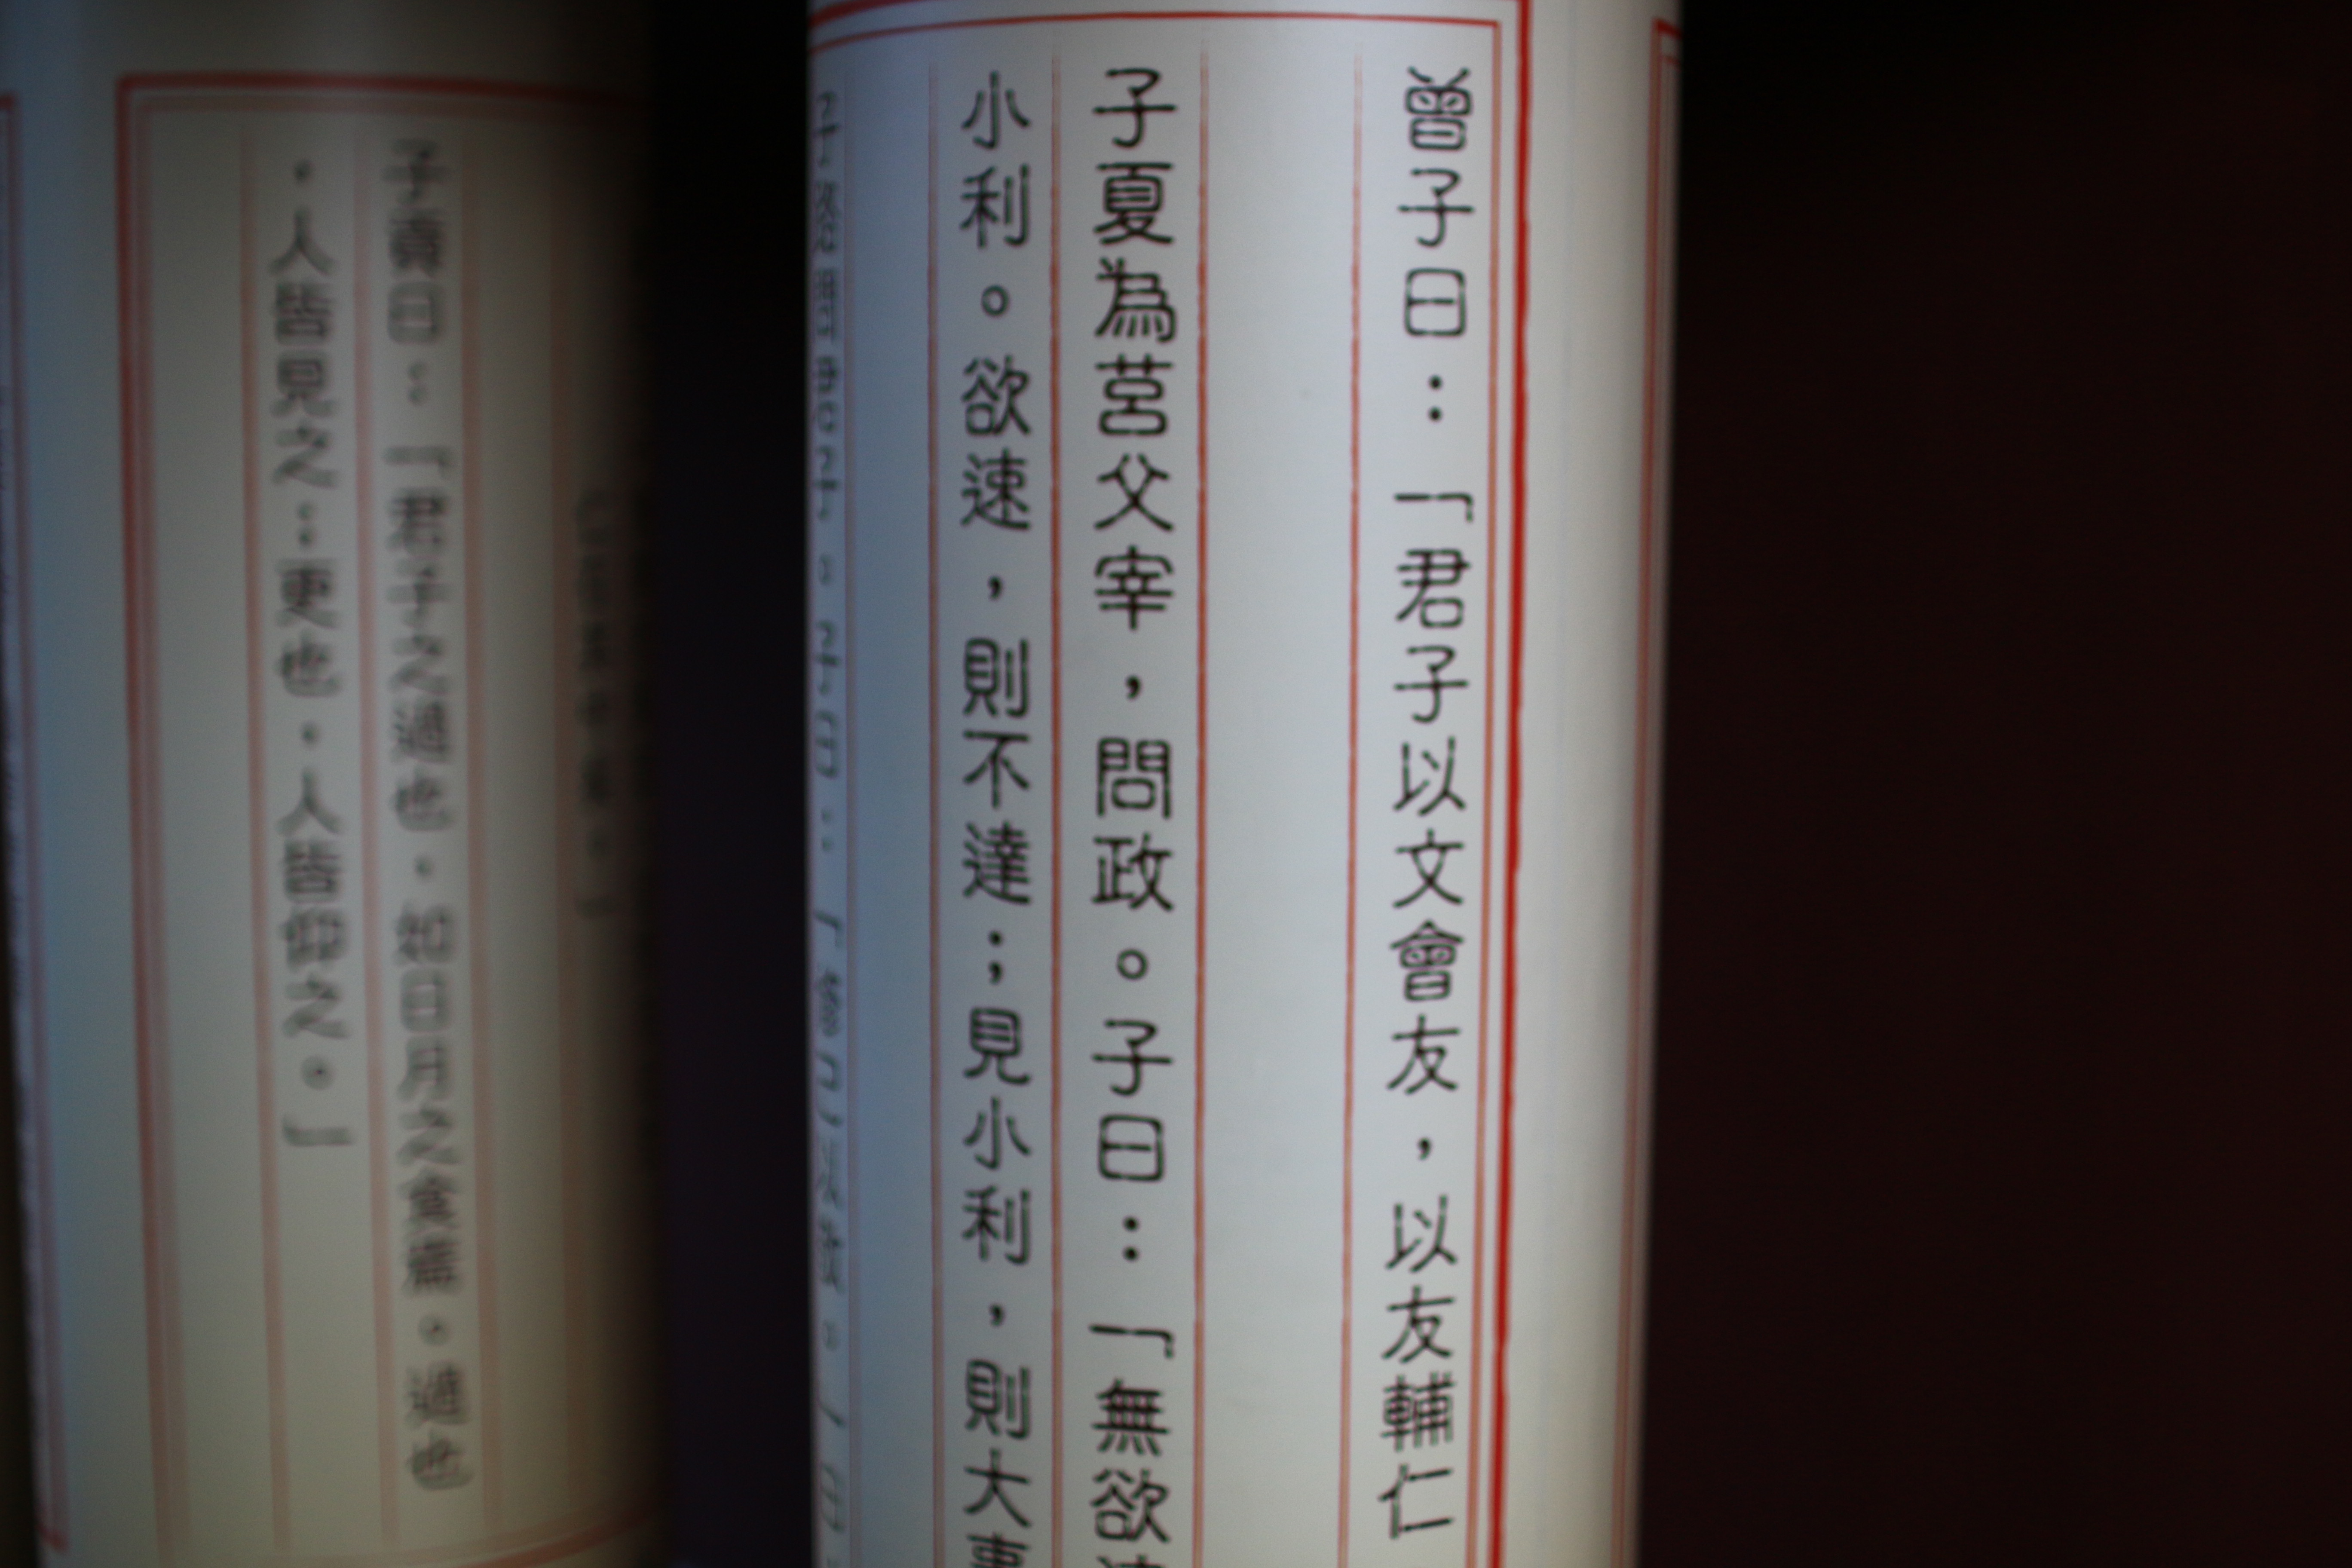 曾子曰：「君子以文會友，以友輔仁
子夏為莒父宰，問政。子曰：「無欲
小利。欲速，則不達；見小利，則大事
子路問君子。子曰：「修己以敬。」曰
子貢曰：「君子之過也，如日月之食焉。過也
，人皆見之；更也，人皆仰之。」